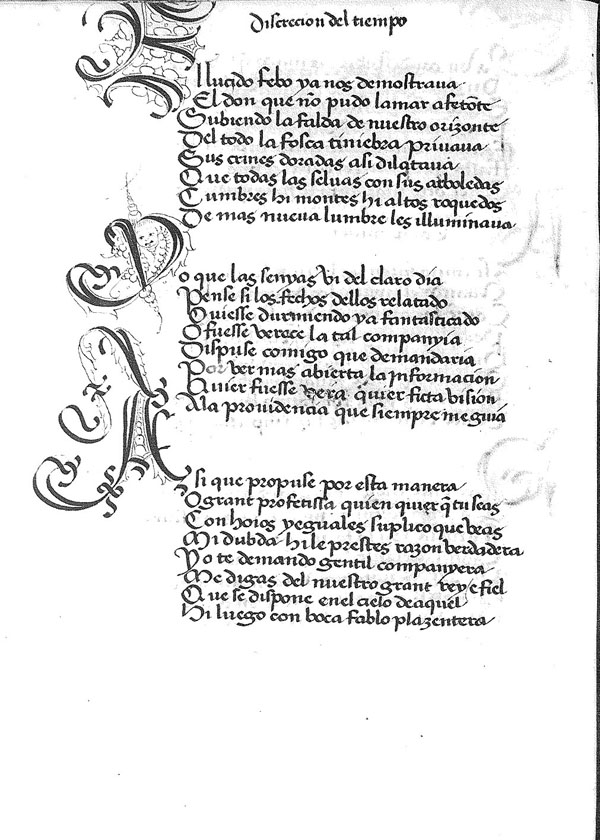 Discrecion del tiempo
El lucido febo ya nos demostrava
El don que nō pudo lamar a fetōte
Subiendo la falda de nuestro orizonte
Del todo la fosca tiniebra privava
Sus crines doradas asi dilatava
Que todas las selvas con sus arboledas
Cumbres hi montes hi altos roquedos
De mas nueva lumbre les illuminava
Yo que las senyas vi del claro dia
Pense si los fechos dellos relatado
Oviesse durmiendo ya fantasticado
O fuesse verace la tal companyia
Dispuse comigo que demandaria
Por ver mas abierta la Informacion
Quier fuesse vera q̄uier ficta vision
A la providencia que siempre me guia
Asi que propuse por esta manera
O grant profetissa quien quier q̄ tu seas
Con hoios yeguales suplico que veas
Mi dubda hi le prestes razon verdadera
Yo te demando gentil companyera
Me digas del nuestro grant rey e fiel
Que se dispone en el cielo de aquel
Hi luego con boca fablo plazentera